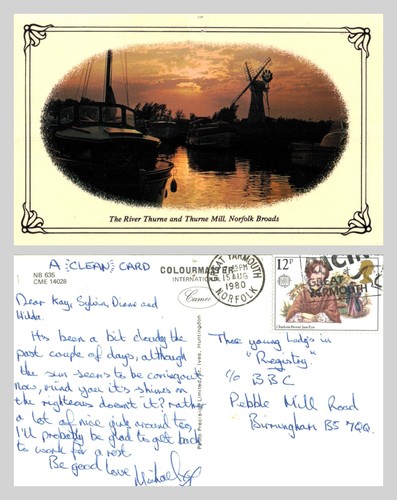 The River Thurne and Thurne Mill, Norfolk Broads
A CLEAN CARD
NB 635
CME 14028
COLOURMASTER
INTERNATIONAL
GREAT YARMOUTH
15 AUG
1980
NORFOLK
12P
GREAT
YARMOUTH
Charlotte Brontë Jane Eyre
Dear Kay, Sylvia, Diane and
Hilda.
It's been a bit cloudy the
past couple of days, although
the sun seems to be coming out
now, mind you it's shines on
the righteous doesn't it? Rather
a lot of nice girls around too,
I'll probably be glad to get back
to work for a rest.
Be good love
Michael
Photo Precision Limited, St. Ives, Huntingdon
These young Lady's in
"Registry"
c/o BBC
Pebble Mill Road
Birmingham B5 7QQ.